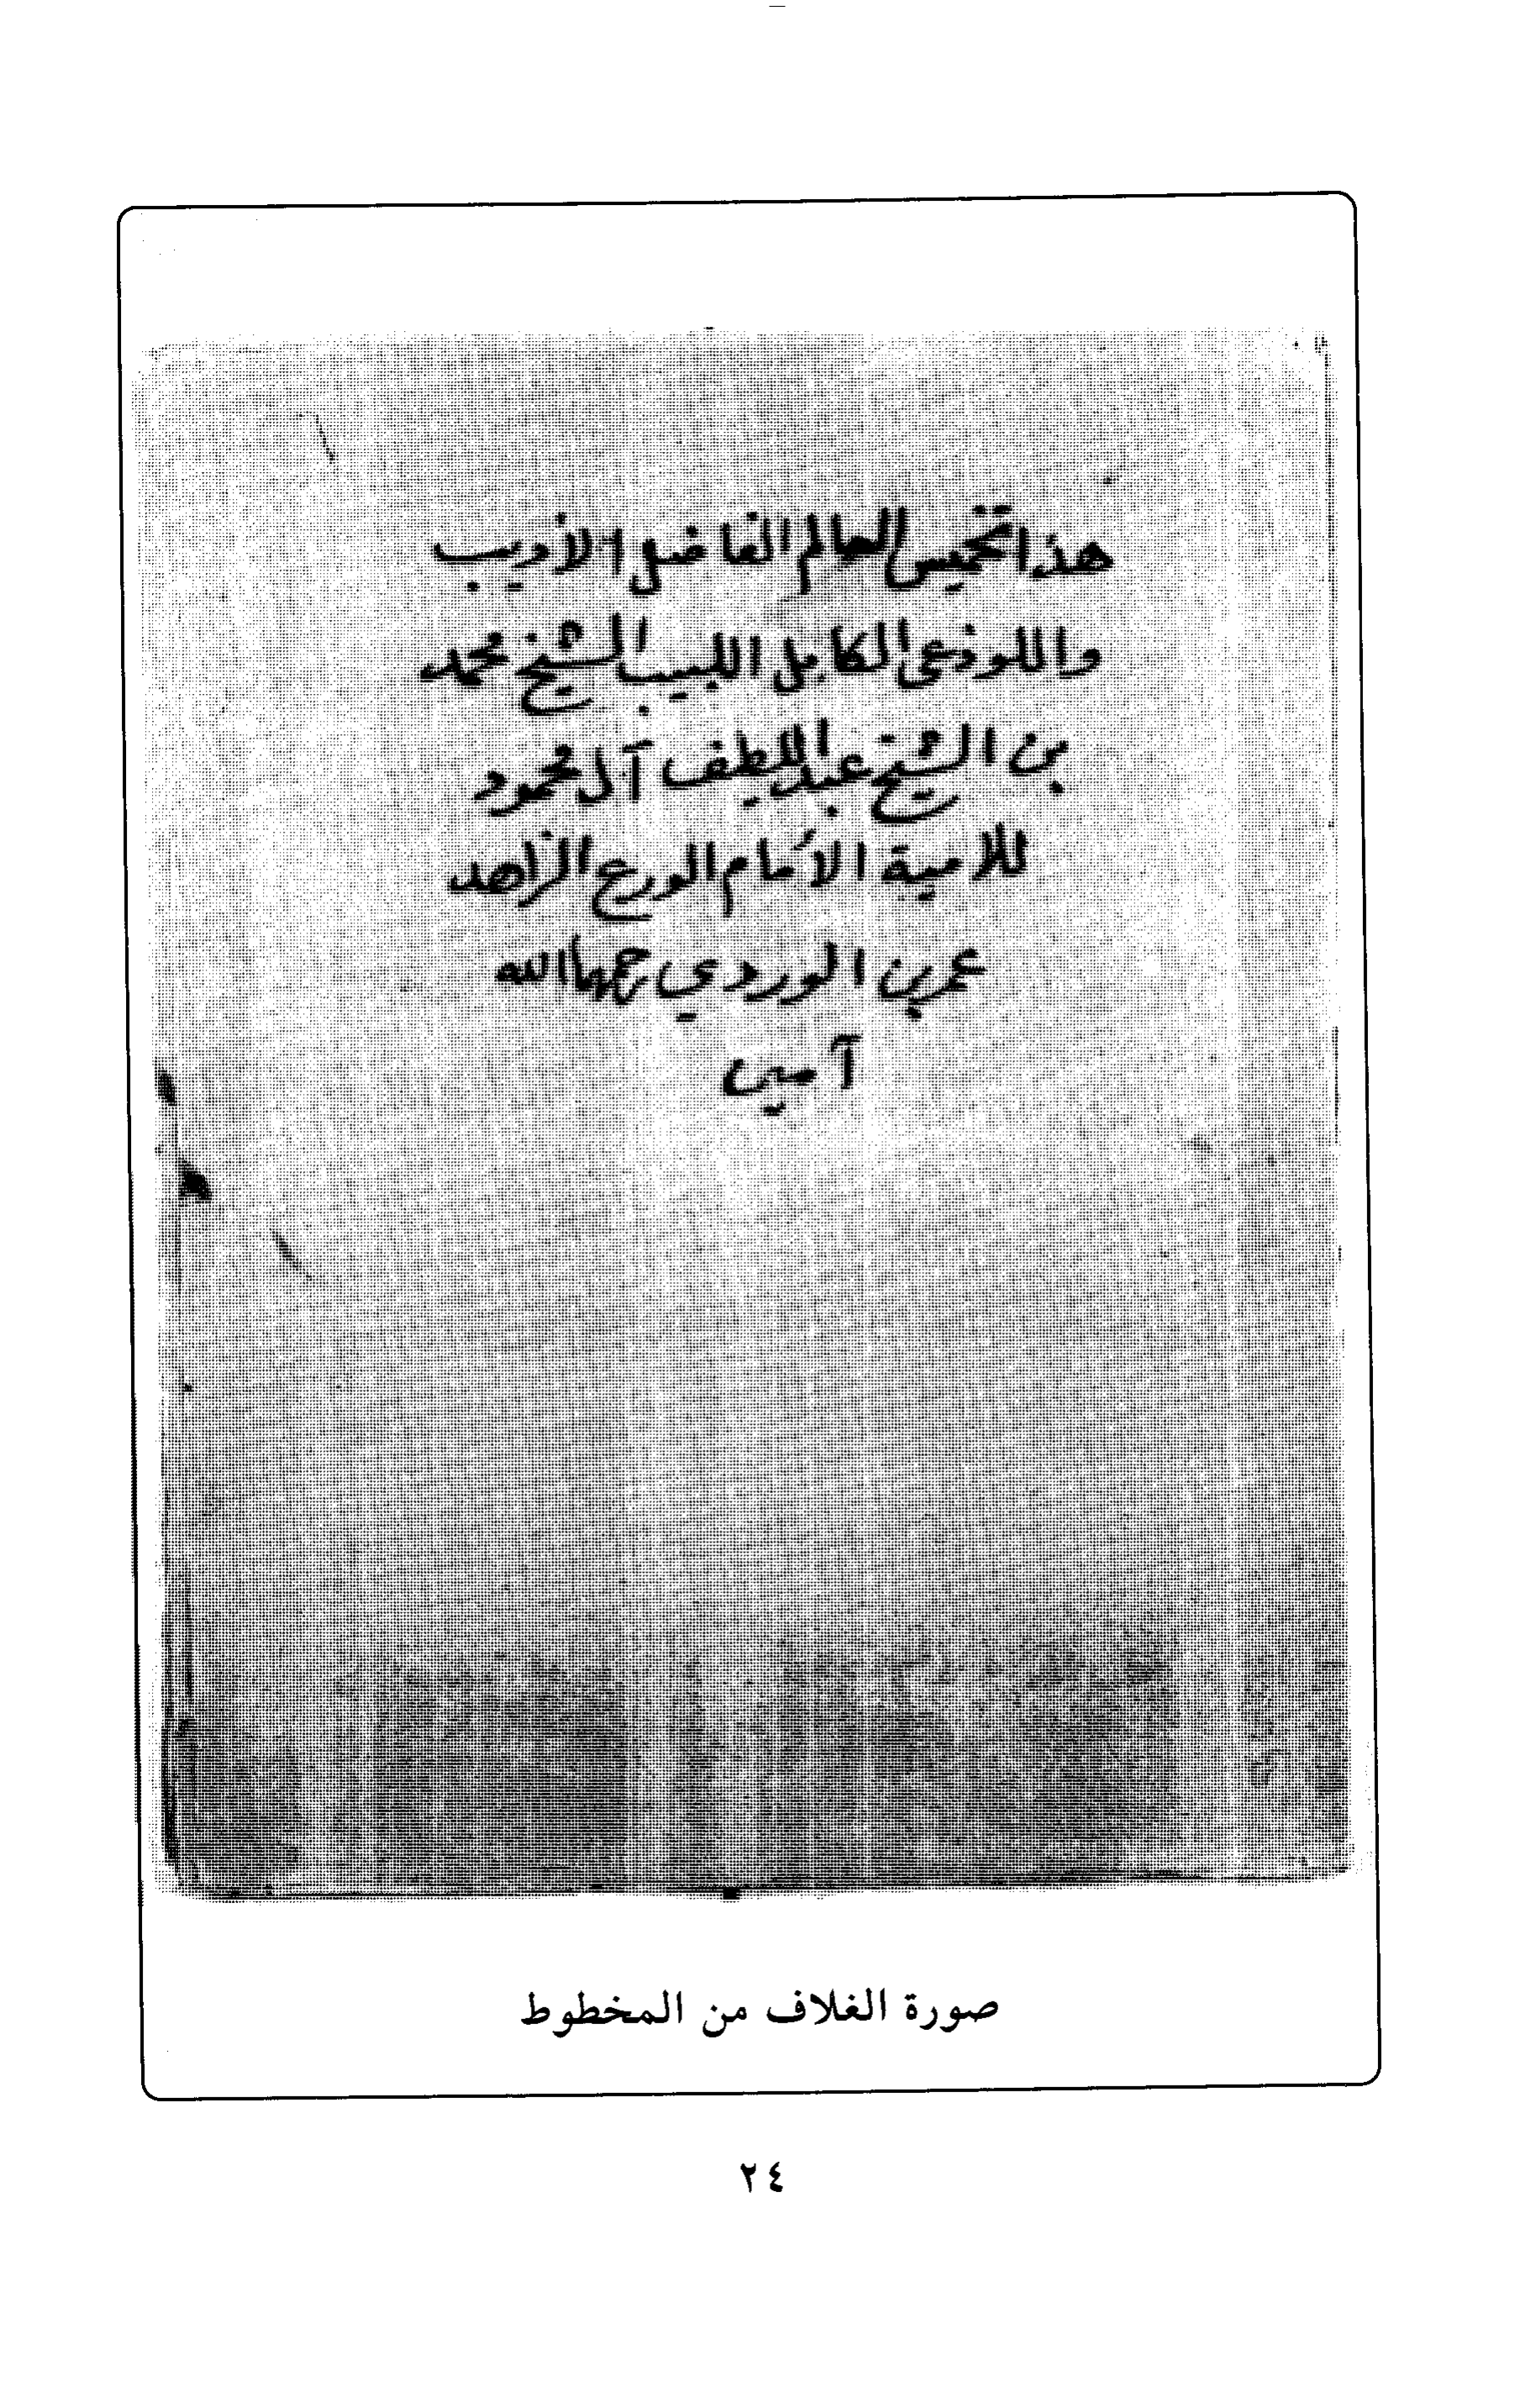 هذا تخميس العالم الفاضل الأديب
واللوذعي الكامل اللبيب الشيخ محمد
بن الشيخ عبد اللطيف آل محمود
للامية الأمام الورع الزاهد
عمر بن الوردي رحمهما الله
آمين
صورة الغلاف من المخطوط
٢٤